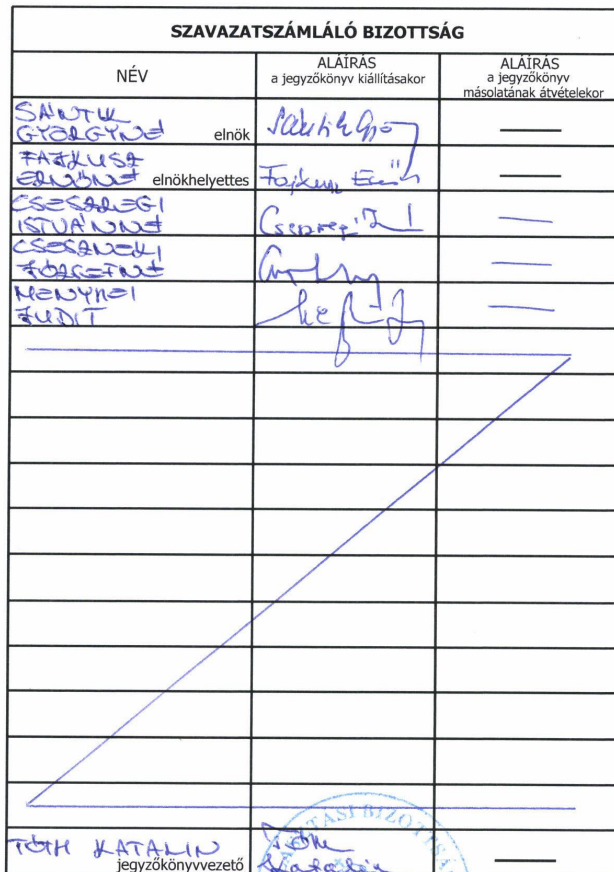 SZAVAZATSZÁMLÁLÓ BIZOTTSÁG
NÉV
ALÁÍRÁS
a jegyzőkönyv kiállításakor
ALÁÍRÁS
a jegyzőkönyv
másolatának átvételekor
GYÖRGYNÉ elnök
FAJKUSZ
ERNŐNÉ elnökhelyettes
CSESZREGI
ISTVÁNNÉ
CSESZNEKI
JÓZSEFNÉ
MENYHEI
JUDIT
TÓTH KATALIN
jegyzőkönyvvezető
Tóth
Katalin